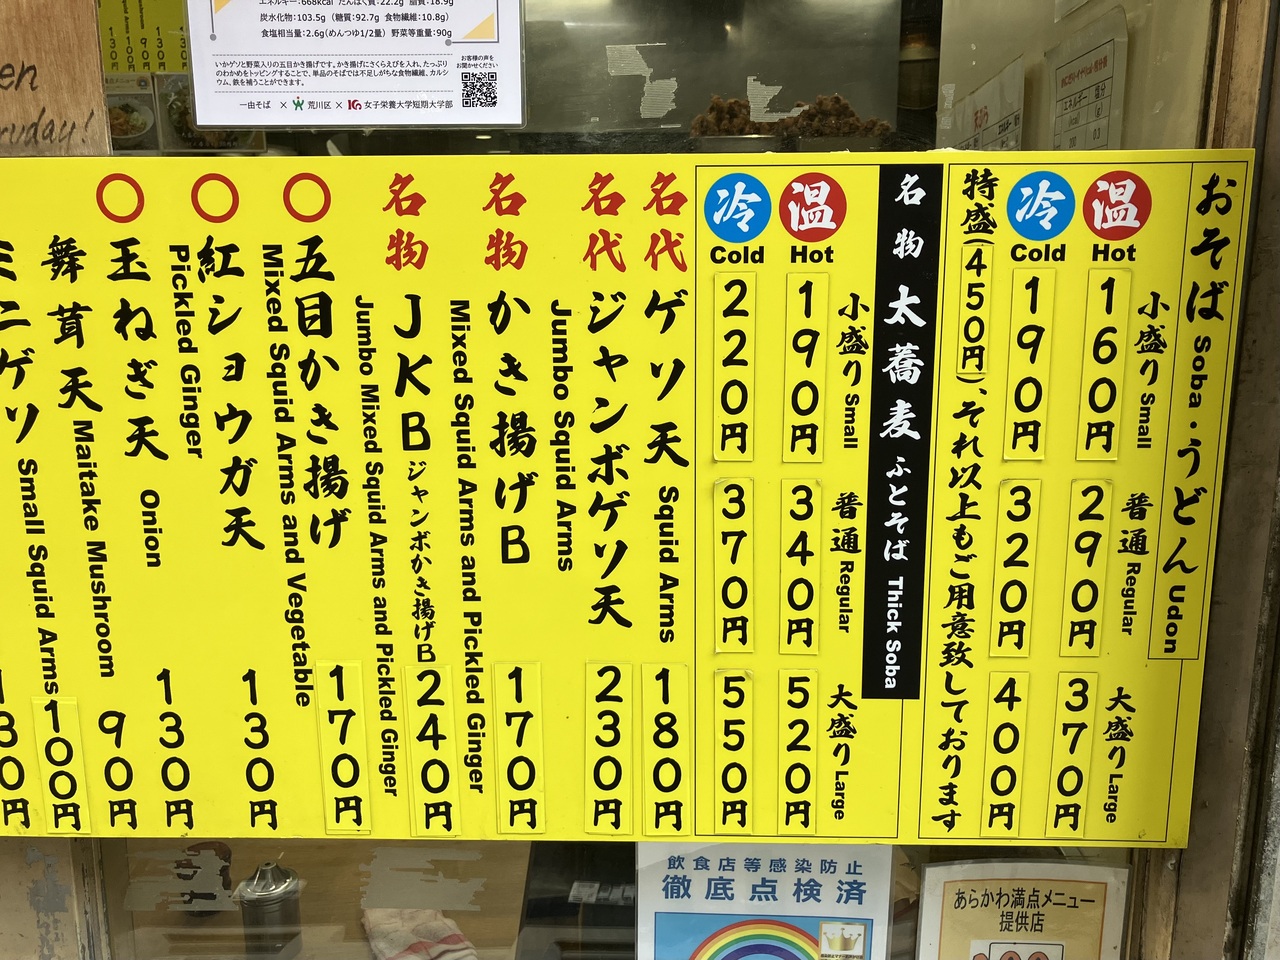 エネルギー:668kcal たんぱく質:22.2g 脂質:18.9g
炭水化物:103.5g(糖質:92.7g 食物繊維:10.8g)
食塩相当量:2.6g(めんつゆ1/2量) 野菜等重量:90g
いかゲソと野菜入りの五目かき揚げです。かき揚げにさくらえびを入れ、たっぷり
のわかめをトッピングすることで、単品のそばでは不足しがちな食物繊維、カルシ
ウム、鉄を補うことができます。
お客様の声を
お聞かせください
一由そば × 荒川区 × 女子栄養大学短期大学部
おそば Soba・うどん Udon
温 Hot
冷 Cold
小盛り Small
160円
190円
普通 Regular
290円
320円
大盛り Large
370円
400円
特盛(450円)、それ以上もご用意致しております
名物 太蕎麦 ふとそば Thick Soba
温 Hot
冷 Cold
小盛り Small
190円
220円
普通 Regular
340円
370円
大盛り Large
520円
550円
名代 ゲソ天 Squid Arms 180円
名代 ジャンボゲソ天 230円
Jumbo Squid Arms
名物 かき揚げB 170円
Mixed Squid Arms and Pickled Ginger
名物 JKB ジャンボかき揚げB 240円
Jumbo Mixed Squid Arms and Pickled Ginger
○ 五目かき揚げ 170円
Mixed Squid Arms and Vegetable
○ 紅ショウガ天 130円
Pickled Ginger
○ 玉ねぎ天 Onion 130円
舞茸天 Maitake Mushroom 90円
ミニゲソ Small Squid Arms 100円
130円
飲食店等感染防止
徹底点検済
あらかわ満点メニュー
提供店